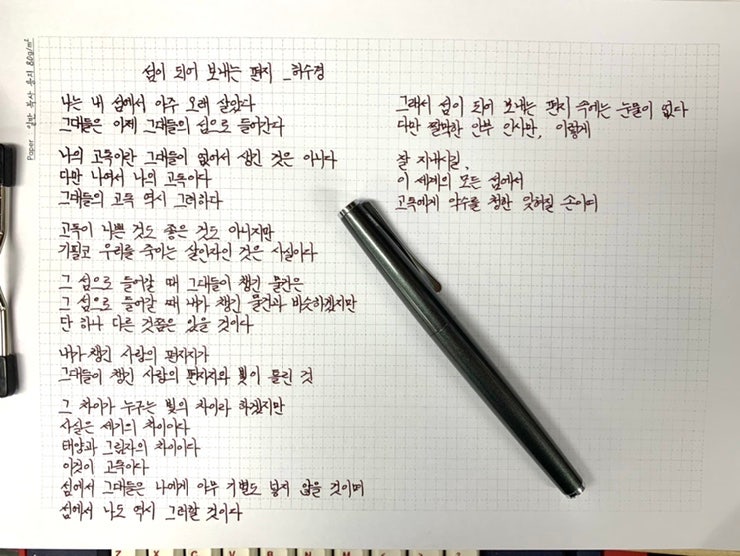 Paper 일반 복사 용지 80g/m²
섬이 되어 보내는 편지 _허수경
나는 내 섬에서 아주 오래 살았다
그대들은 이제 그대들의 섬으로 들어간다
나의 고독이란 그대들이 없어서 생긴 것은 아니다
다만 나여서 나의 고독이다
그대들의 고독 역시 그러하다
고독이 나쁜 것도 좋은 것도 아니지만
기필코 우리를 죽이는 살인자인 것은 사실이다
그 섬으로 들어갈 때 그대들이 챙긴 물건은
그 섬으로 들어갈 때 내가 챙긴 물건과 비슷하겠지만
단 하나 다른 것쯤은 있을 것이다
내가 챙긴 사랑의 편지지가
그대들이 챙긴 사랑의 편지지와 빛이 틀린 것
그 차이가 누구는 빛의 차이라 하겠지만
사실은 세기의 차이다
태양과 그림자의 차이이다
이것이 고독이다
섬에서 그대들은 나에게 아무 기별도 넣지 않을 것이며
섬에서 나도 역시 그러할 것이다
그래서 섬이 되어 보내는 편지 속에는 눈물이 없다
다만 짤막한 안부 인사만, 이렇게
잘 지내시길,
이 세계의 모든 섬에서
고독에게 악수를 청한 잊혀질 손이여
Z X C V B N M < > ?